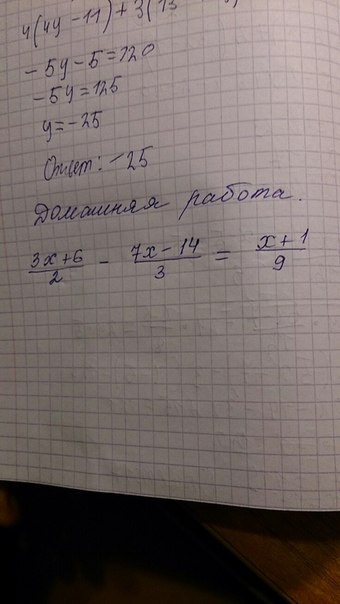 4(4y-11)+3(13
-5y-5=120
-5y=125
y=-25
Ответ: -25
Домашняя работа.
(3x+6)/2 - (7x-14)/3 = (x+1)/9